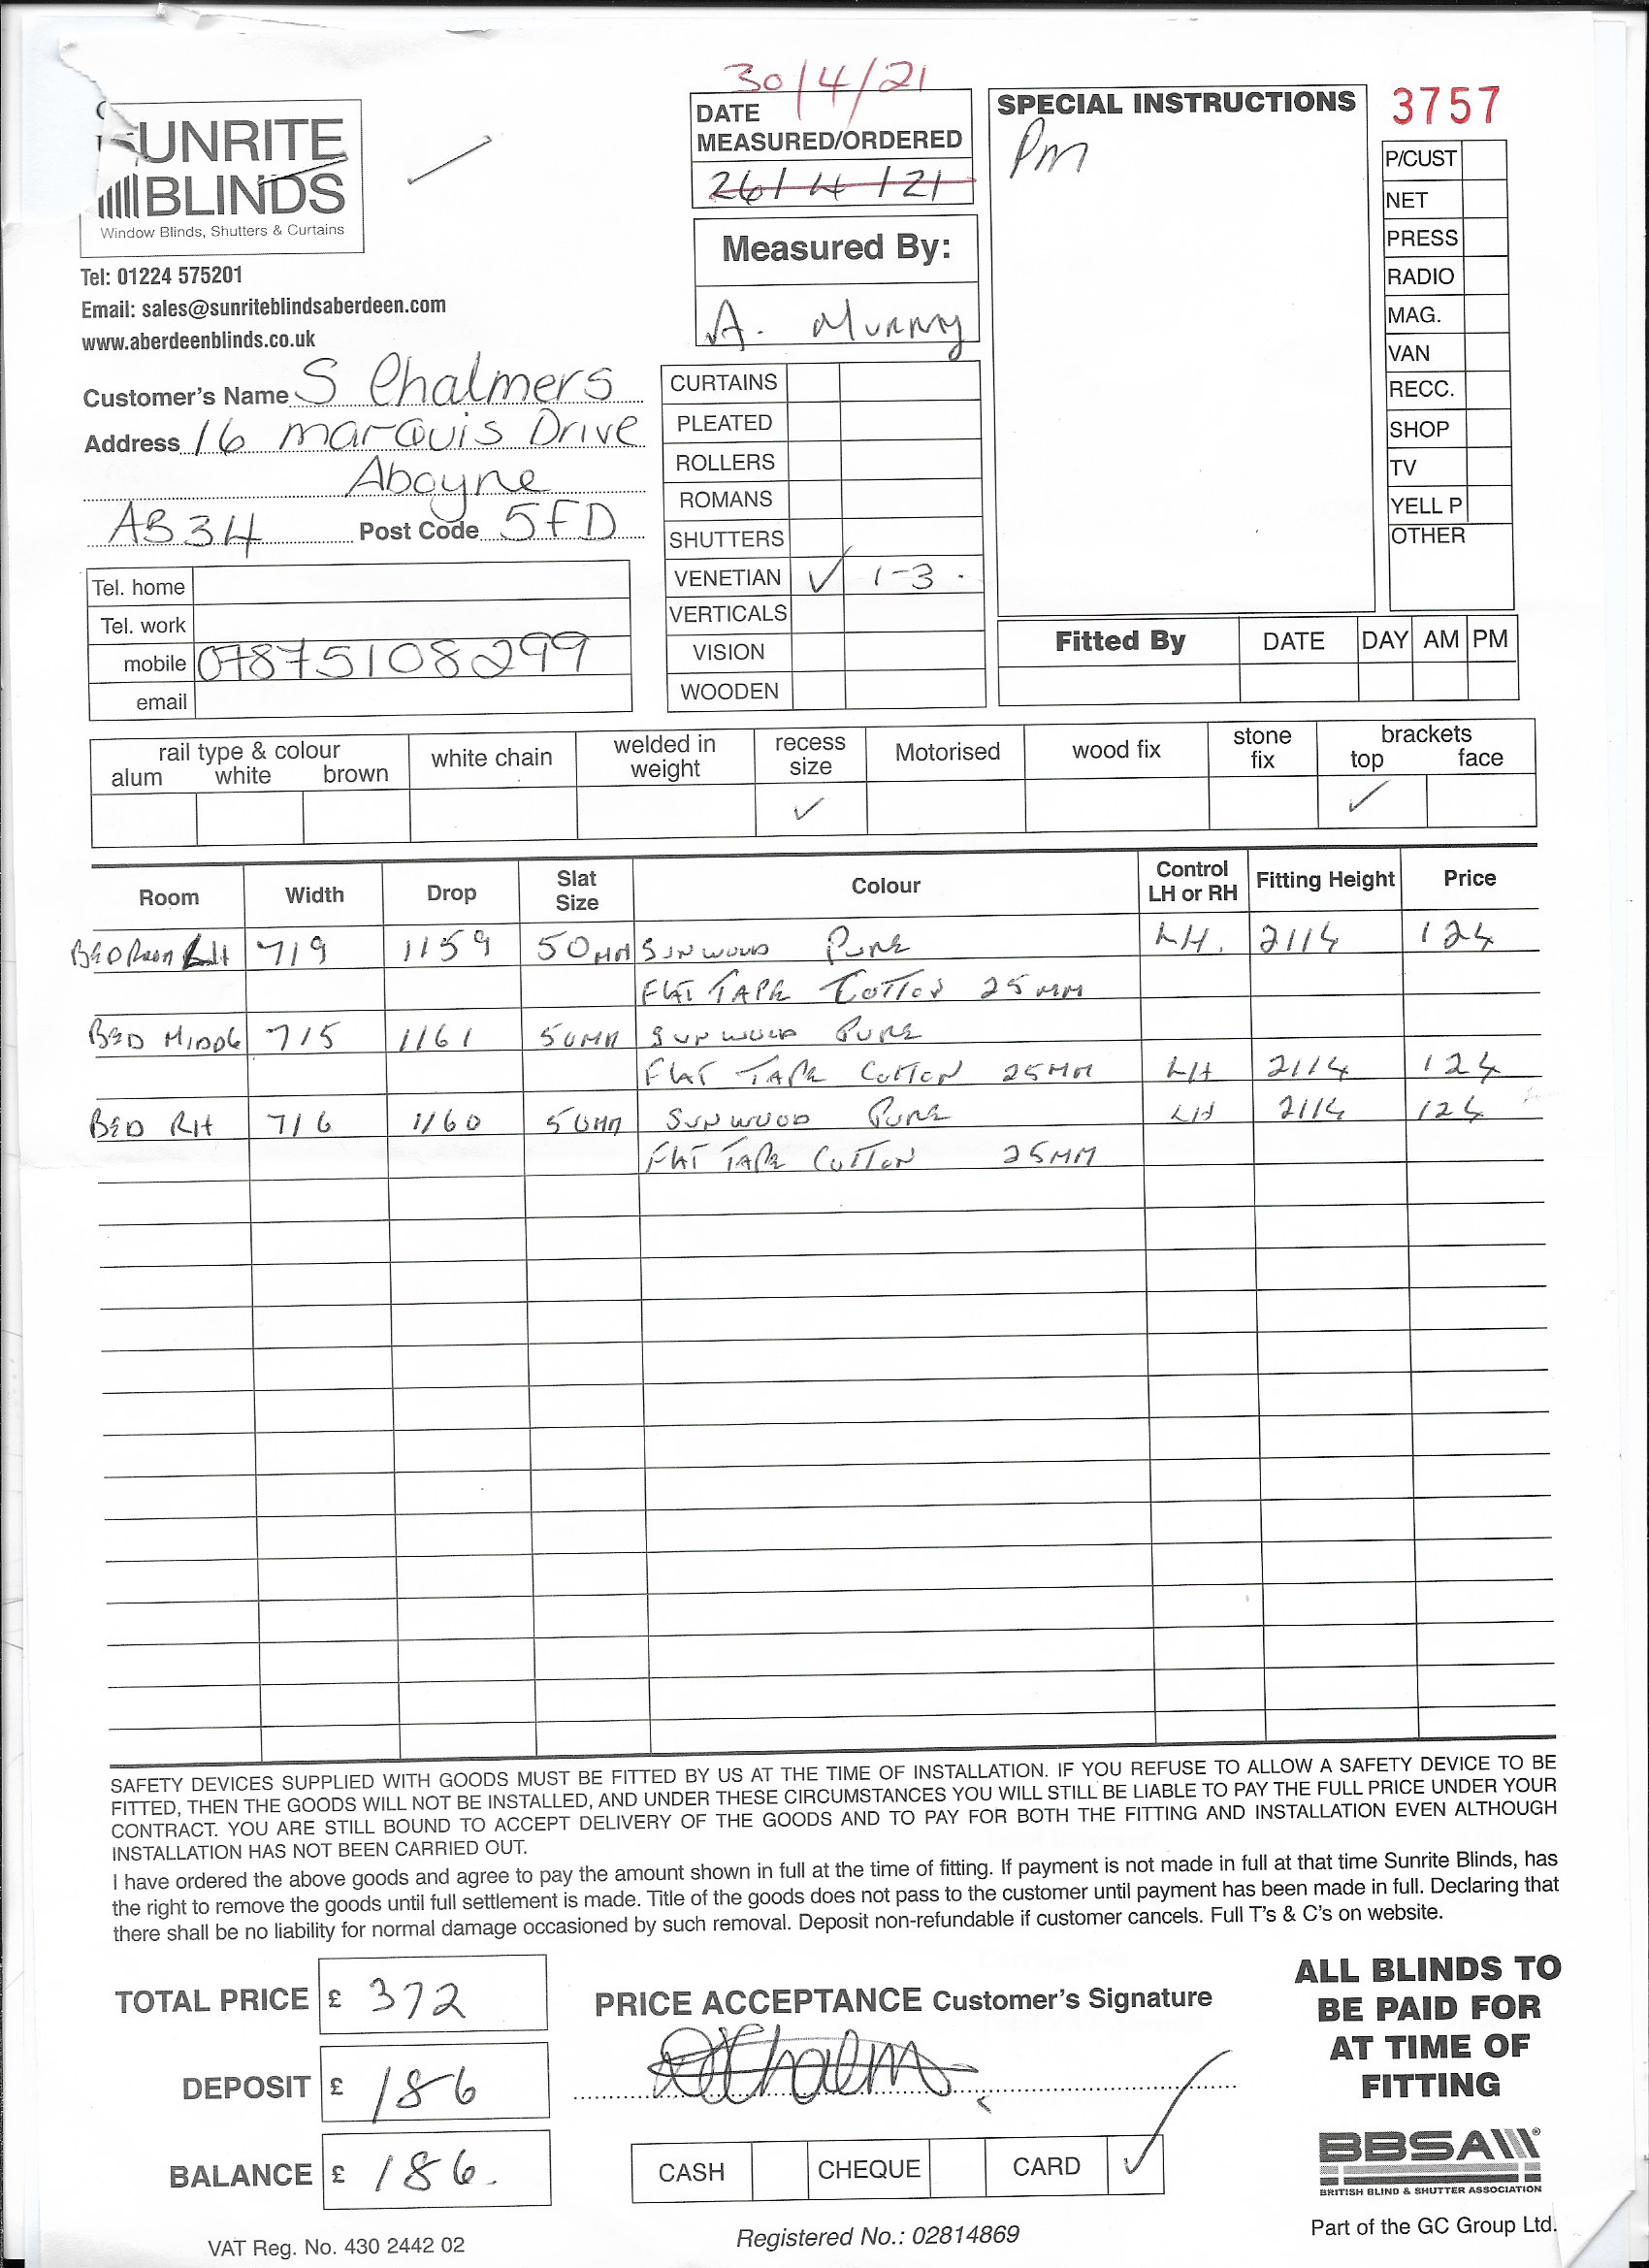 30/4/21
SUNRITE
BLINDS
Window Blinds, Shutters & Curtains
Tel: 01224 575201
Email: sales@sunriteblindsaberdeen.com
www.aberdeenblinds.co.uk
DATE
MEASURED/ORDERED
26/4/21
Measured By:
A. Murray
SPECIAL INSTRUCTIONS
Pm
3757
P/CUST
NET
PRESS
RADIO
MAG.
VAN
RECC.
SHOP
TV
YELL P
OTHER
Customer's Name S Chalmers
Address 16 marquis Drive
Aboyne
AB34 Post Code 5FD
Tel. home
Tel. work
mobile 07875108299
email
CURTAINS
PLEATED
ROLLERS
ROMANS
SHUTTERS
VENETIAN ✓ 1-3.
VERTICALS
VISION
WOODEN
Fitted By DATE DAY AM PM
rail type & colour
alum white brown
white chain
welded in
weight
recess
size
✓
Motorised
wood fix
stone
fix
brackets
top face
✓
Room Width Drop Slat Size Colour Control LH or RH Fitting Height Price
BEDROOM LH 719 1159 50MM SUNWOOD PURE LH. 2114 124
FLAT TAPE COTTON 25MM
BED MIDDLE 715 1161 50MM SUNWOOD PURE
FLAT TAPE COTTON 25MM LH 2114 124
BED RH 716 1160 50MM SUNWOOD PURE LH 2114 124
FLAT TAPE COTTON 25MM
SAFETY DEVICES SUPPLIED WITH GOODS MUST BE FITTED BY US AT THE TIME OF INSTALLATION. IF YOU REFUSE TO ALLOW A SAFETY DEVICE TO BE
FITTED, THEN THE GOODS WILL NOT BE INSTALLED, AND UNDER THESE CIRCUMSTANCES YOU WILL STILL BE LIABLE TO PAY THE FULL PRICE UNDER YOUR
CONTRACT. YOU ARE STILL BOUND TO ACCEPT DELIVERY OF THE GOODS AND TO PAY FOR BOTH THE FITTING AND INSTALLATION EVEN ALTHOUGH
INSTALLATION HAS NOT BEEN CARRIED OUT.
I have ordered the above goods and agree to pay the amount shown in full at the time of fitting. If payment is not made in full at that time Sunrite Blinds, has
the right to remove the goods until full settlement is made. Title of the goods does not pass to the customer until payment has been made in full. Declaring that
there shall be no liability for normal damage occasioned by such removal. Deposit non-refundable if customer cancels. Full T's & C's on website.
TOTAL PRICE £ 372
DEPOSIT £ 186
BALANCE £ 186.
PRICE ACCEPTANCE Customer's Signature
CASH CHEQUE CARD ✓
ALL BLINDS TO
BE PAID FOR
AT TIME OF
FITTING
BBSA
BRITISH BLIND & SHUTTER ASSOCIATION
Part of the GC Group Ltd.
VAT Reg. No. 430 2442 02
Registered No.: 02814869